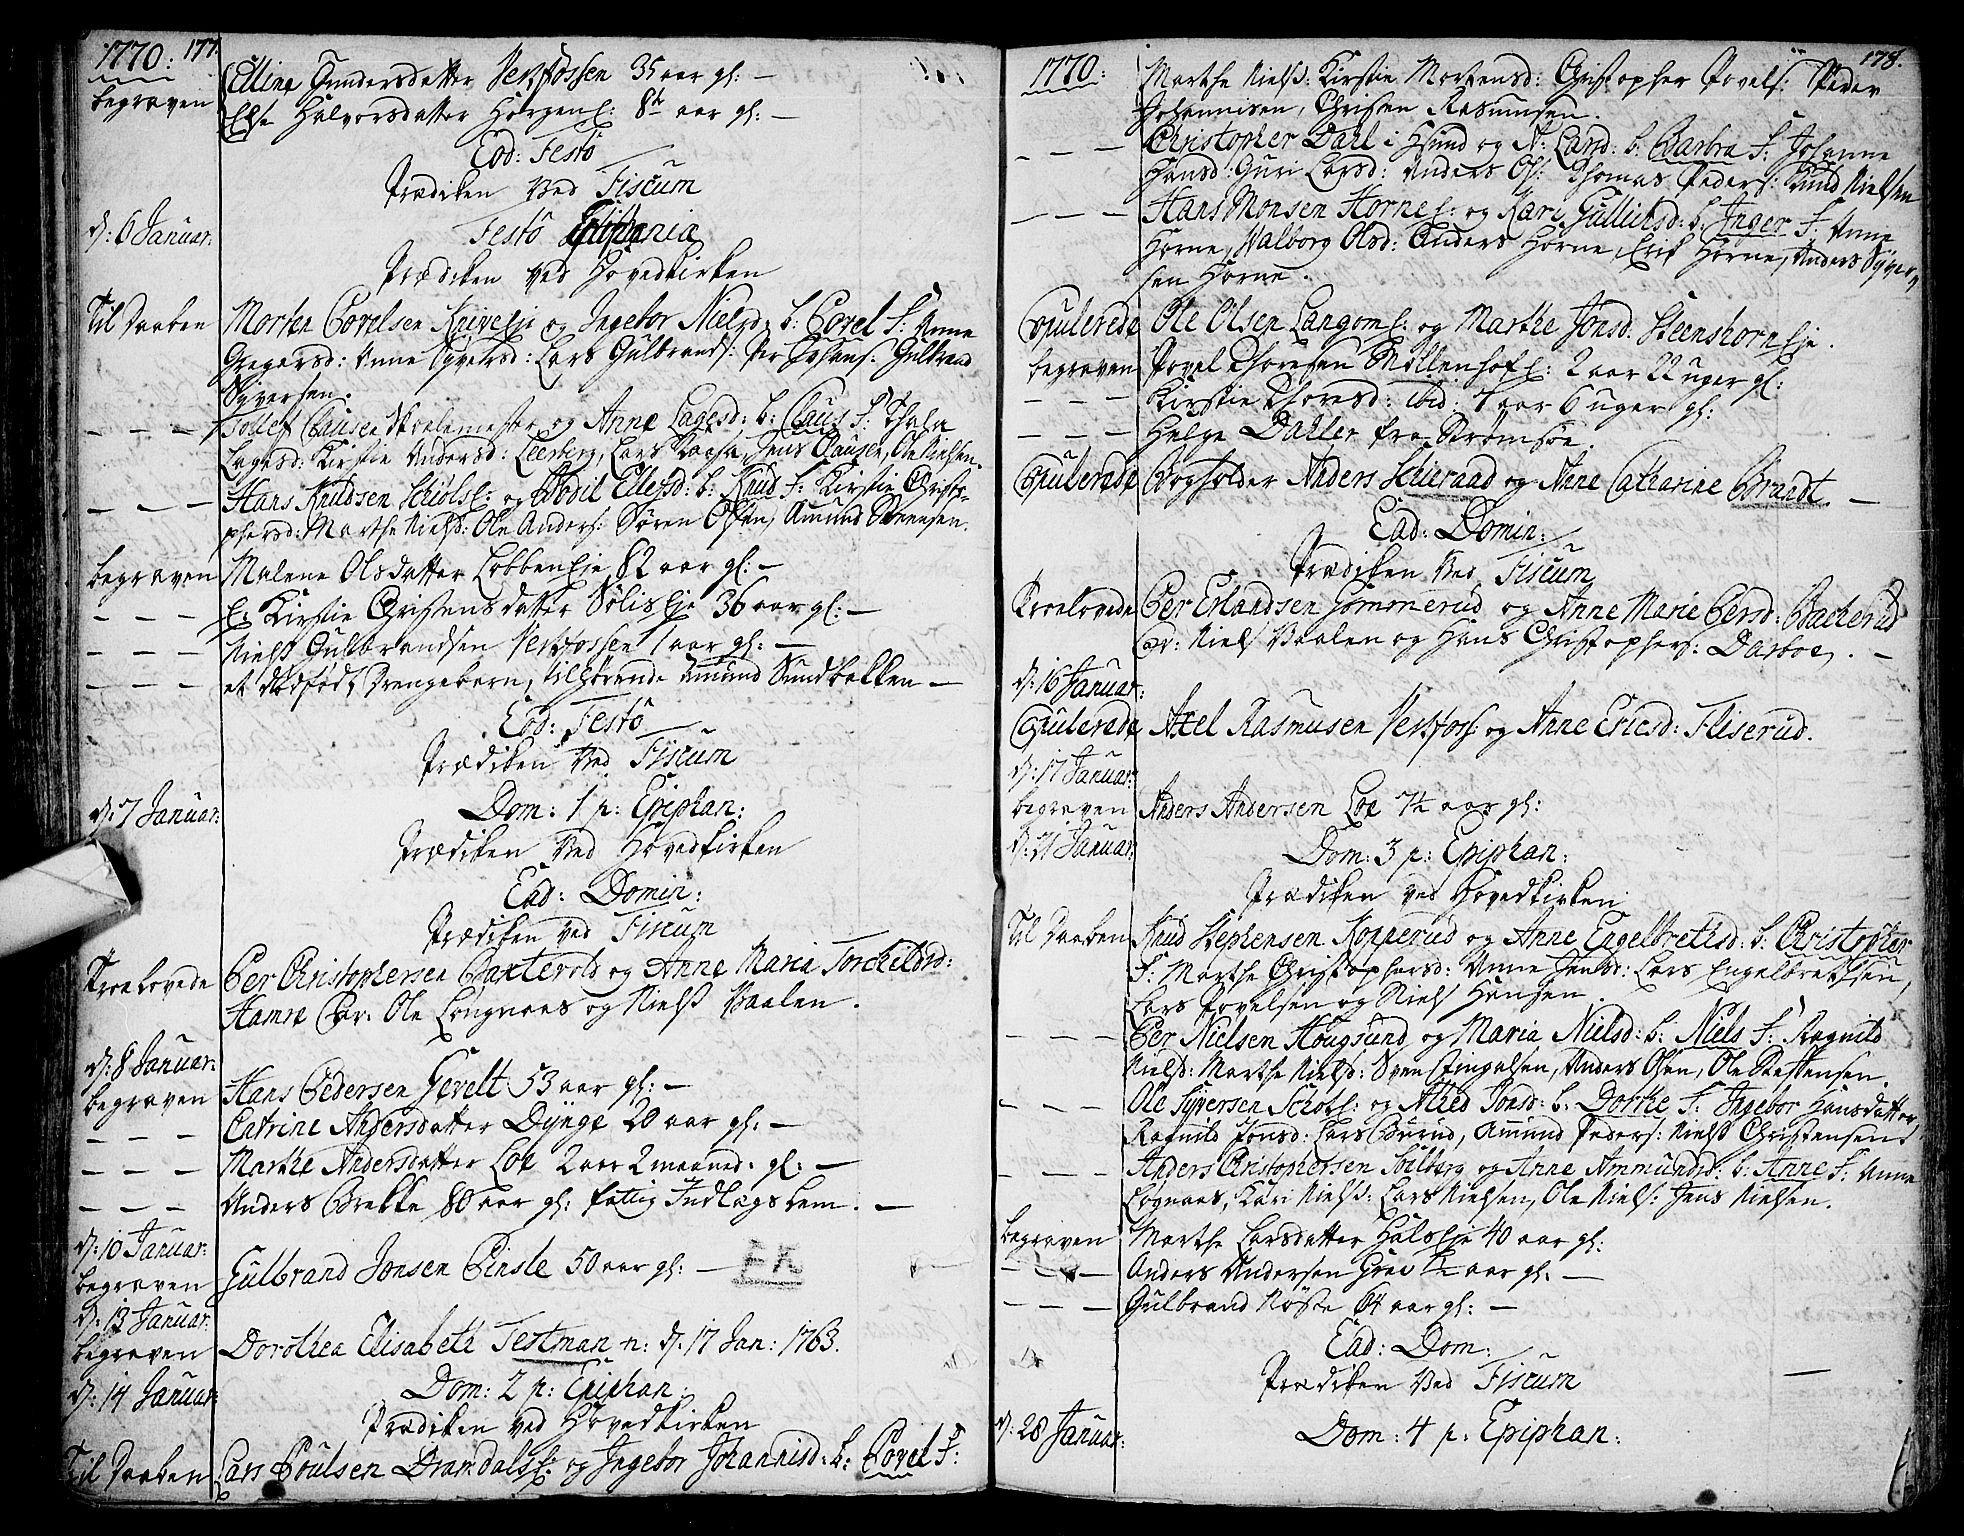 1770. 177.
begraven Elline Gundersdatter Vestfossen 35 aar gl: —
Else Halvorsdatter Horgen E: 8te aar gl: —
Eod: Festo
Prædiken ved Fiscum
d: 6 Januar: Festo Epiphania
Prædiken ved Hovedkirken
Til Daaben Morten Povelsen Knive Eje og Ingebor Nielsd: b: Povel F: Anne
Gregersd: Anne Syversd: Lars Gulbrands: Per Johans: Gulbrand
Syversen.
— — — Tollef Clausen Skolemester og Anne Lagesd: b: Claus F:
Lagesd: Kirstie Andersd: Leerberg, Lars Kaasa, Jens Clausen, Ole Nielsen.
— — — Hans Knudsen Schiøls E: og Bodil Ellefsd: b: Knud F: Kirstie Christo-
phersd: Marthe Nielsd: Ole Anders: Søren Olsen, Amund Sørensen.
begraven Malene Olsdatter Lobben Eje 82 aar gl: —
— — — E: Kirstie Christensdatter Sølis Eje 36 aar gl: —
— — — Niels Gulbrandsen Vestfossen 1 aar gl: —
— — — et dødfødt Drengebarn, tilhørende Amund Sundbakken —
Eod: Festo
Prædiken ved Fiscum
d: 7 Januar: Dom: 1 p: Epiphan:
Prædiken ved Hovedkirken
Ead: Domin:
Prædiken ved Fiscum
Troelovede Per Christophersen Baxterold og Anne Maria Torchildsd:
Hamre Cav: Ole Lognaes og Niels Vaalen.
d: 8 Januar:
begraven Hans Pedersen Gevelt 53 aar gl: —
— — — Catrine Andersdatter Dynge 20 aar gl: —
— — — Marthe Andersdatter Loe 2 aar 2 maaned: gl: —
— — — Anders Brekke 80 aar gl: fattig Indlagslem. —
d: 10 Januar:
begraven Gulbrand Jonsen Pinsle 50 aar gl: —
d: 13 Januar:
begraven Dorothea Elisabeth Testman n: d: 17 Jan: 1763.
d: 14 Januar: Dom: 2 p: Epiphan:
Prædiken ved Hovedkirken
Til Daaben Lars Poulsen Dramdals E: og Ingebor Johannisd: b: Povel F:
1770: 178.
Marthe Nielsd: Kirstie Mortensd: Christopher Povels: Peder
Johannisen, Christen Rasmusen.
— — — Christopher Dahl i Hsund og A: Larsd: b: Barbra F: Johanne
Hansd: Guri Larsd: Anders Ols: Thomas Peders: Knud Nielsen
— — — Hans Monsen Horne E: og Kari Gullichsd: b: Inger F: Anne
Horne, Valborg Olsd: Anders Horne, Erik Horne, Anders Syver-
sen Horne.
Copulerede Ole Olsen Langom E: og Marthe Jonsd: Steenshorn Eje.
begraven Povel Thoresen Møllenhof E: 2 aar 22 uger gl:
— — — Kirstie Thoresd: ibid: 7 aar 6 uger gl:
— — — Helge Dahler fra Strømsøe.
Copulerede Bogholder Anders Schieraad og Anne Catharine Brandt —
Ead: Domin:
Prædiken ved Fiscum
Troelovede Per Erlandsen Gomonerud og Anne Marie Persd: Bacherud
Cav: Niels Vaalen og Hans Christophers: Darboe. —
d: 16 Januar:
Copulerede Axel Rasmusen Vestfoss: og Anne Ericsd: Fliserud.
d: 17 Januar:
begraven Anders Andersen Loe 74 aar gl:
d: 21 Januar: Dom: 3 p: Epiphan:
Prædiken ved Hovedkirken
Til Daaben Knud Stephensen Kopperud og Anne Engelbrethsd: b: Christopher
F: Marthe Christophersd: Anne Jensd: Lars Engelbrethsen,
Lars Povelsen og Niels Hansen.
— — — Per Nielsen Hougsund og Maria Nielsd: b: Niels F: Ragnild
Nielsd: Marthe Nielsd: Sven Olsen, Ole Steffensen.
— — — Ole Syversen Schot E: og Alhed Jonsd: b: Dorthe F: Ingebor Hansdatter,
Ragnild Jonsd: Lars Burud, Amund Peders: Niels Christensen
— — — Anders Christophersen Solberg og Anne Ammundsd: b: Anne F: Anne
Lognaes, Kari Nielsd: Lars Nielsen, Ole Niels: Jens Nielsen.
begraven Marthe Larsdatter Hals Eje 40 aar gl:
— — — Anders Andersen Grav 1/2 aar gl: —
— — — Gulbrand Røste 64 aar gl: —
Ead: Dom:
Prædiken ved Fiscum
d: 28 Januar: Dom: 4 p: Epiphan: